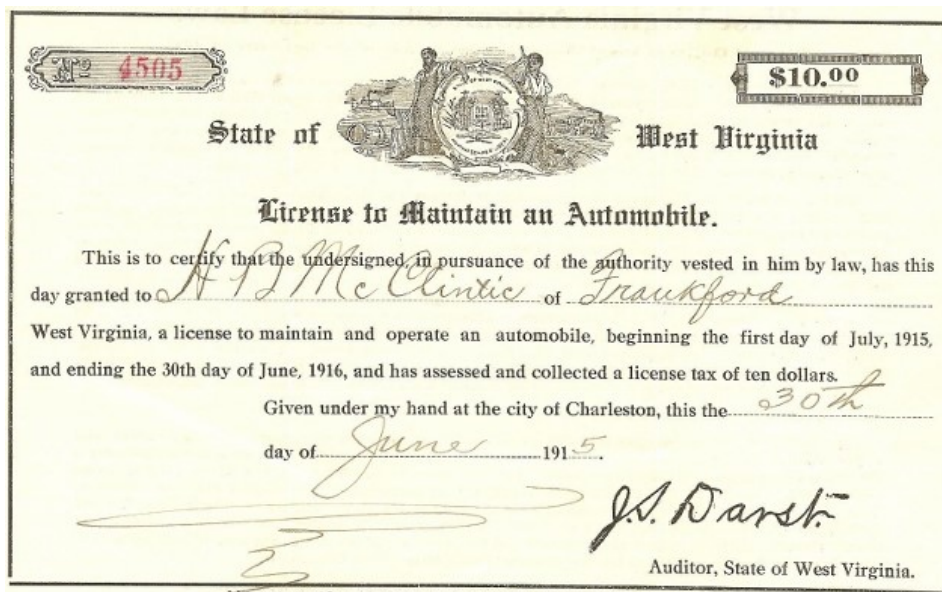 No 4505
$10.00
State of West Virginia
License to Maintain an Automobile.
This is to certify that the undersigned in pursuance of the authority vested in him by law, has this
day granted to H B McClintic of Frankford
West Virginia, a license to maintain and operate an automobile, beginning the first day of July, 1915,
and ending the 30th day of June, 1916, and has assessed and collected a license tax of ten dollars.
Given under my hand at the city of Charleston, this the 30th
day of June 1915.
J.S. Darst.
Auditor, State of West Virginia.